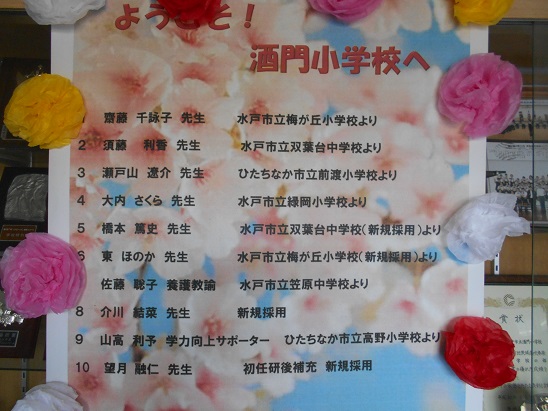 ようこそ！
酒門小学校へ
1 齋藤 千詠子 先生 水戸市立梅が丘小学校より
2 須藤 利香 先生 水戸市立双葉台中学校より
3 瀬戸山 遼介 先生 ひたちなか市立前渡小学校より
4 大内 さくら 先生 水戸市立緑岡小学校より
5 橋本 篤史 先生 水戸市立双葉台中学校（新規採用）より
6 東 ほのか 先生 水戸市立梅が丘小学校（新規採用）より
佐藤 聡子 養護教諭 水戸市立笠原中学校より
8 介川 結菜 先生 新規採用
9 山高 利予 学力向上サポーター ひたちなか市立高野小学校より
10 望月 融仁 先生 初任研後補充 新規採用
賞状